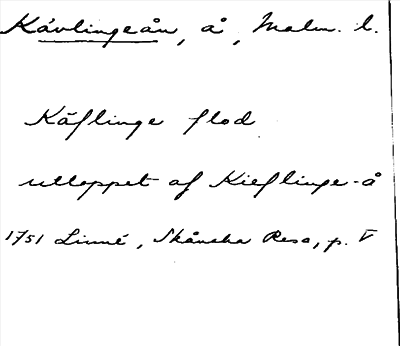 Kävlingeån, å, Malm. l.
Käflinge flod
utloppet af Kieflinge-å
1751 Linné, Skånska Resa, p. V